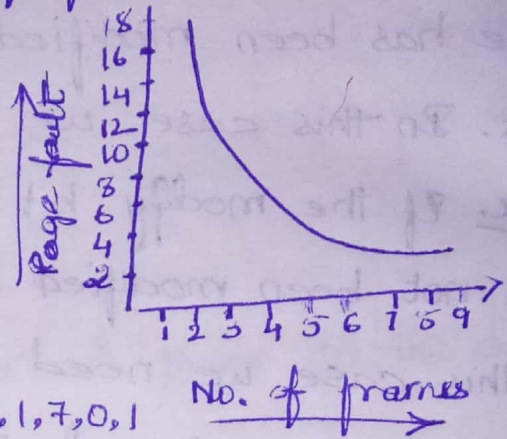 18
16
14
12
10
8
6
4
2
Page fault
1 2 3 4 5 6 7 8 9
No. of frames
,1,7,0,1